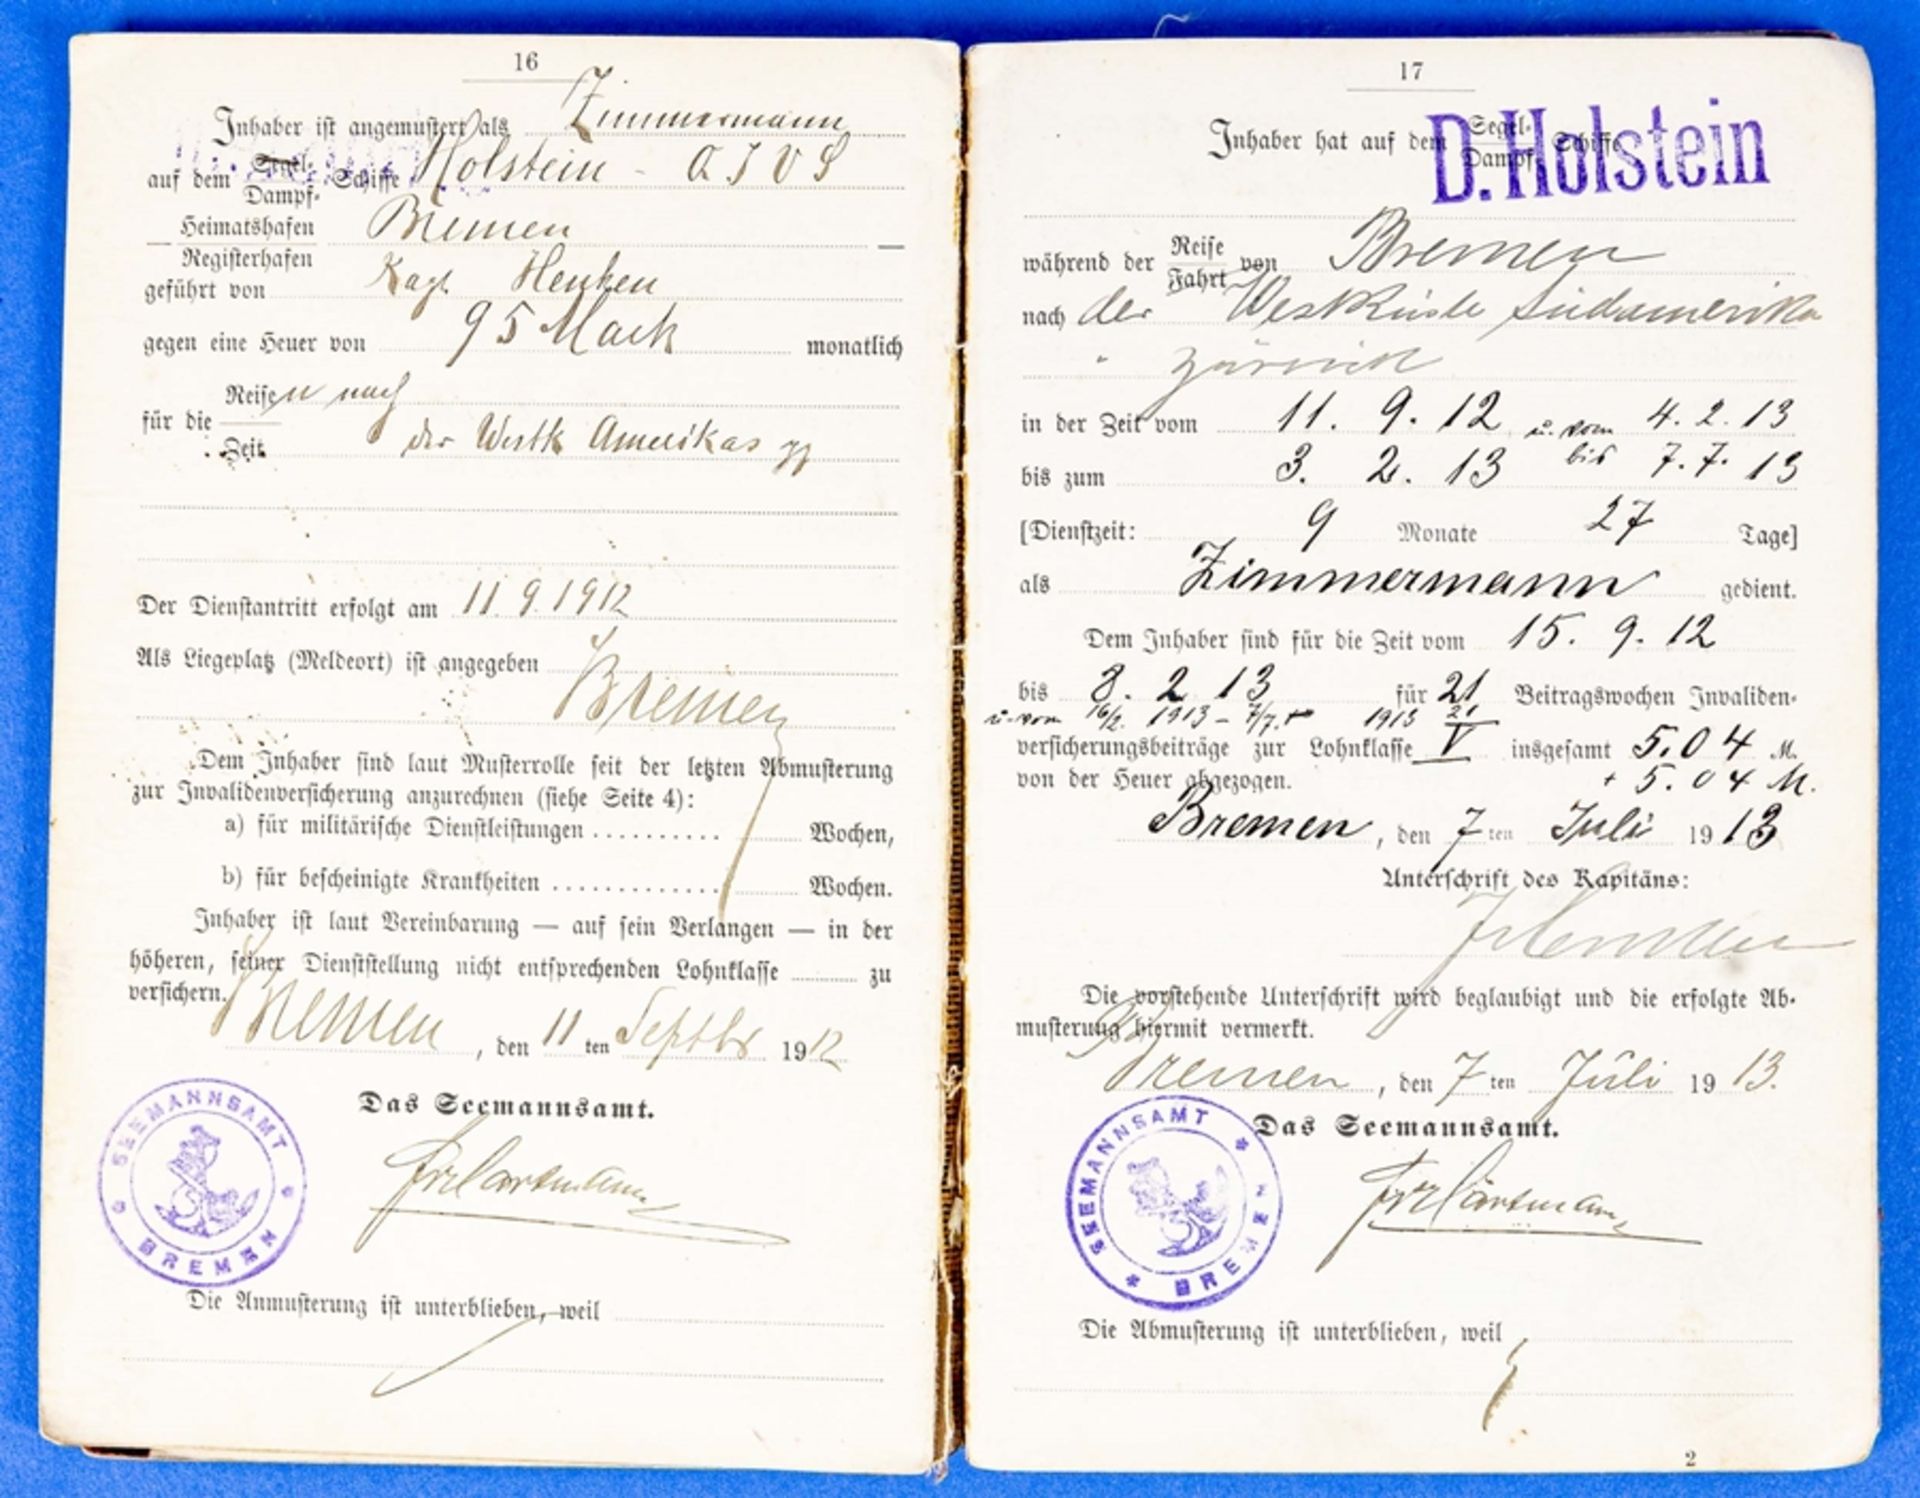 16
Inhaber ist angemustert als Zimmermann
auf dem Segel- Dampf- Schiffe Holstein - Q J V S
Heimatshafen Bremen
Registerhafen
geführt von Kapt. Henken
gegen eine Heuer von 95 Mark monatlich
für die Reisen nach
Zeit der Westk Amerikas
Der Dienstantritt erfolgt am 11 9. 1912
Als Liegeplatz (Meldeort) ist angegeben
Bremen
Dem Inhaber sind laut Musterrolle seit der letzten Abmusterung
zur Invalidenversicherung anzurechnen (siehe Seite 4):
a) für militärische Dienstleistungen .......... Wochen,
b) für bescheinigte Krankheiten ............. Wochen.
Inhaber ist laut Vereinbarung — auf sein Verlangen — in der
höheren, seiner Dienststellung nicht entsprechenden Lohnklasse zu
versichern.
Bremen, den 11ten Septbr 1912
Das Seemannsamt.
SEEMANNSAMT
BREMEN
Die Anmusterung ist unterblieben, weil
17
Inhaber hat auf dem Segel- Dampf- Schiffe
D. Holstein
während der Reise Fahrt von Bremen
nach der Westküste Südamerika
" zurück
in der Zeit vom 11. 9. 12 u. vom 4. 2. 13
bis zum 3. 2. 13 bis 7. 7. 13
[Dienstzeit: 9 Monate 27 Tage]
als Zimmermann gedient.
Dem Inhaber sind für die Zeit vom 15. 9. 12
bis 8. 2 13 für 21 Beitragswochen Invaliden-
u. vom 16/2. 1913 - 7/7. 1913 21
versicherungsbeiträge zur Lohnklasse V insgesamt 5.04 M.
von der Heuer abgezogen. + 5.04 M.
Bremen, den 7ten Juli 1913
Unterschrift des Kapitäns:
Henken
Die vorstehende Unterschrift wird beglaubigt und die erfolgte Ab-
musterung hiermit vermerkt.
Bremen, den 7ten Juli 1913.
Das Seemannsamt.
SEEMANNSAMT
BREMEN
Die Abmusterung ist unterblieben, weil
2